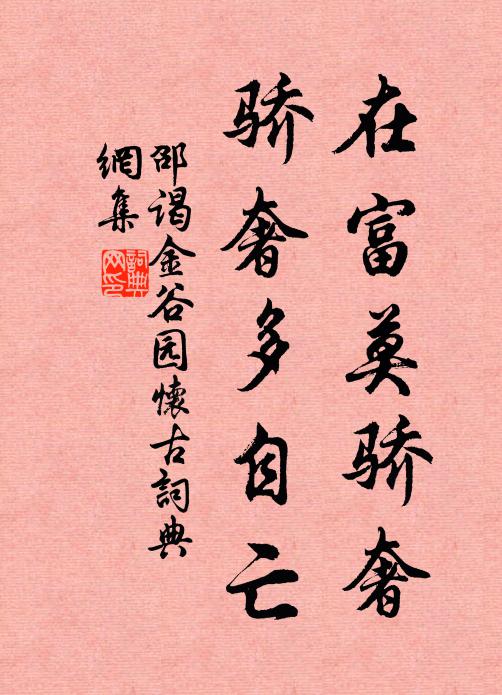 在富莫骄奢
骄奢多自亡
邵谒金谷园懷古詞典
網集
詞典
网印